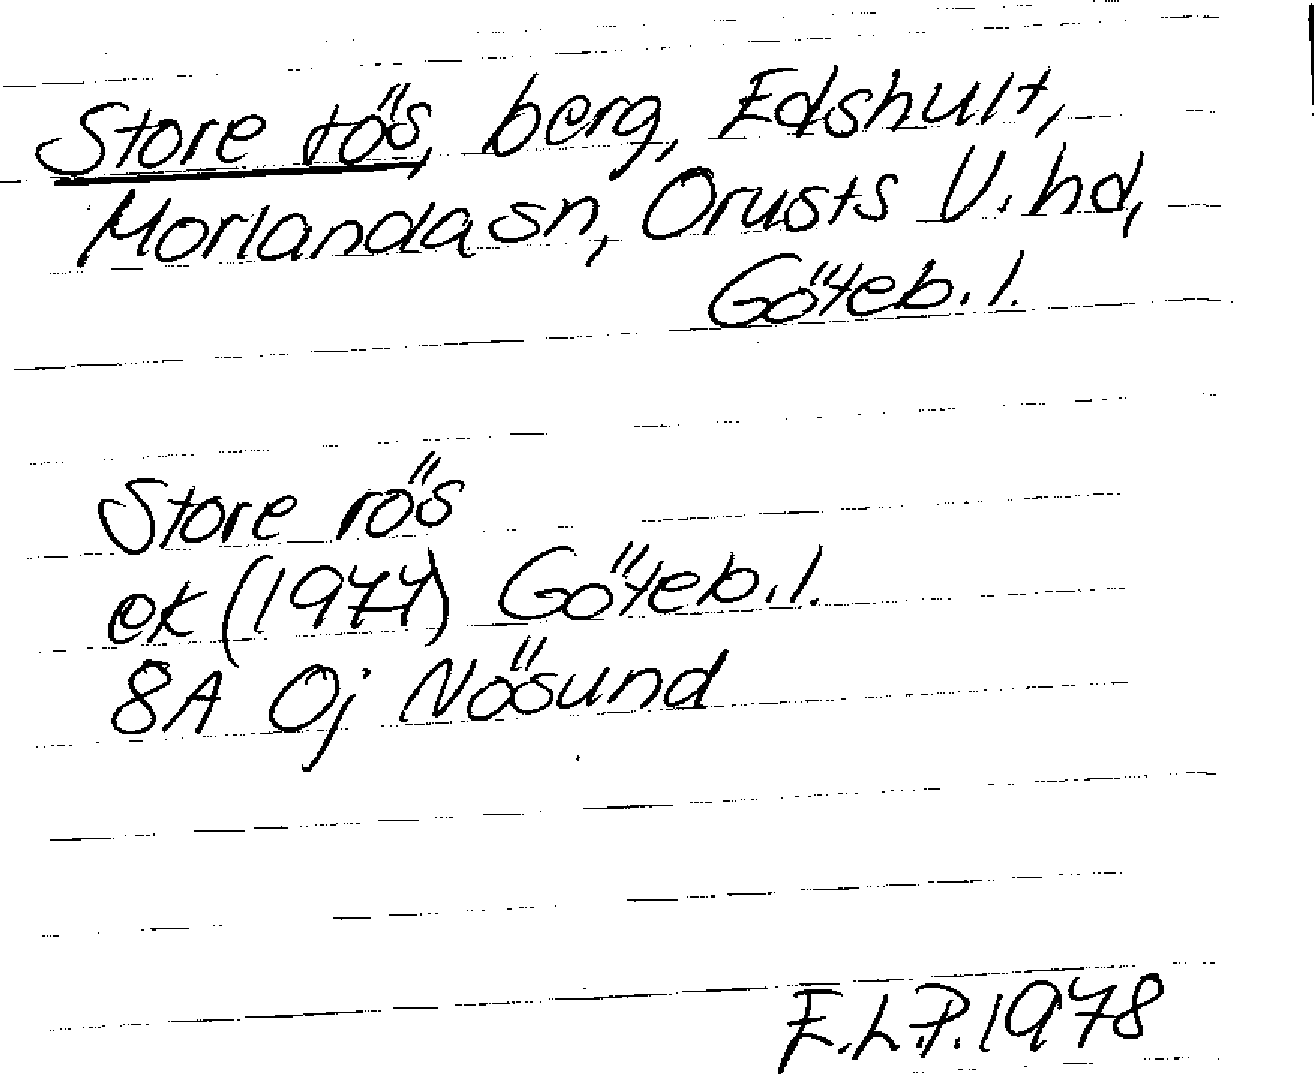 Store rös, berg, Edshult,
Morlanda sn, Orusts V. hd,
Göteb. l.
Store rös
ek (1977) Göteb. l.
8A 0j Nösund
E.L.P. 1978